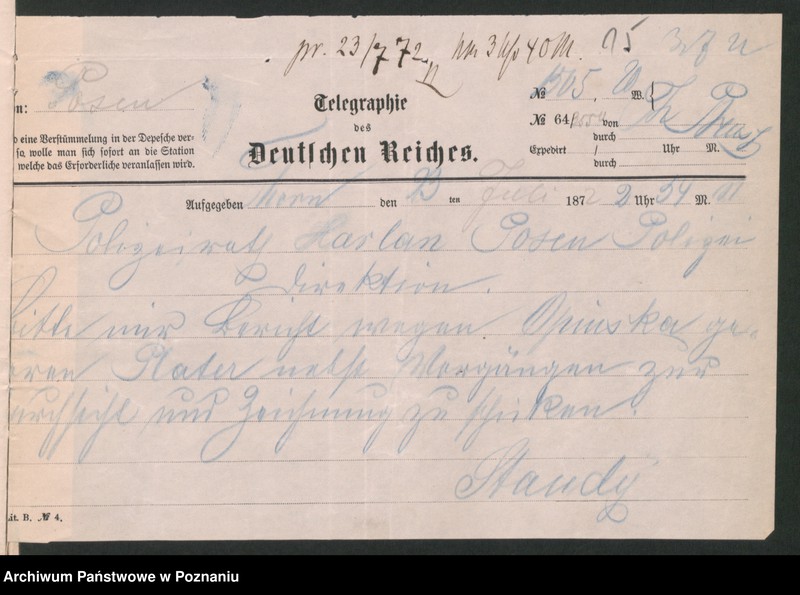 pr. 23/7 72 Nm 3 Uhr 40 M. 15
Posen
Telegraphie
des
Deutschen Reiches.
№ 505, W.
№ 64/ von
durch
Expedirt / Uhr M.
durch
eine Verstümmelung in der Depesche ver-
so, wolle man sich sofort an die Station
welche das Erforderliche veranlassen wird.
Aufgegeben den 23 ten Juli 1872 2 Uhr 54 M.
Polizeirath Harlan Posen Polizei
Direktion.
bitte mir Bericht wegen Opinska ge-
oren Plater nebst Vorgängen zur
urchsicht und Zeichnung zu schicken.
Staudy
Lit. B. № 4.
Archiwum Państwowe w Poznaniu